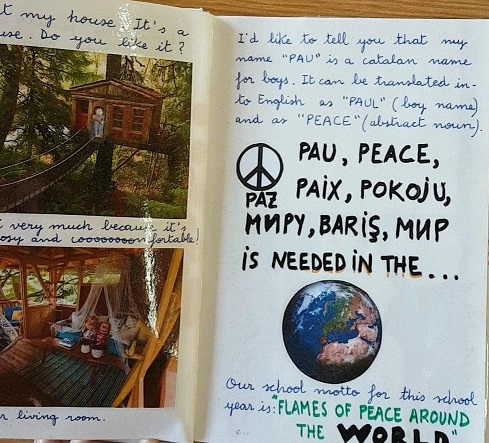 t my house. It's a
use. Do you like it?
very much because it's
osy and cooooooomfortable!
r living room.
I'd like to tell you that my
name "PAU" is a catalan name
for boys. It can be translated in-
to English as "PAUL" (boy name)
and as "PEACE" (abstract noun).
PAZ
PAU, PEACE,
PAIX, POKOJU,
МИРУ, BARIŞ, МИР
iS NEEDED iN THE...
Our school motto for this school
year is: "FLAMES OF PEACE AROUND
THE WORLD"